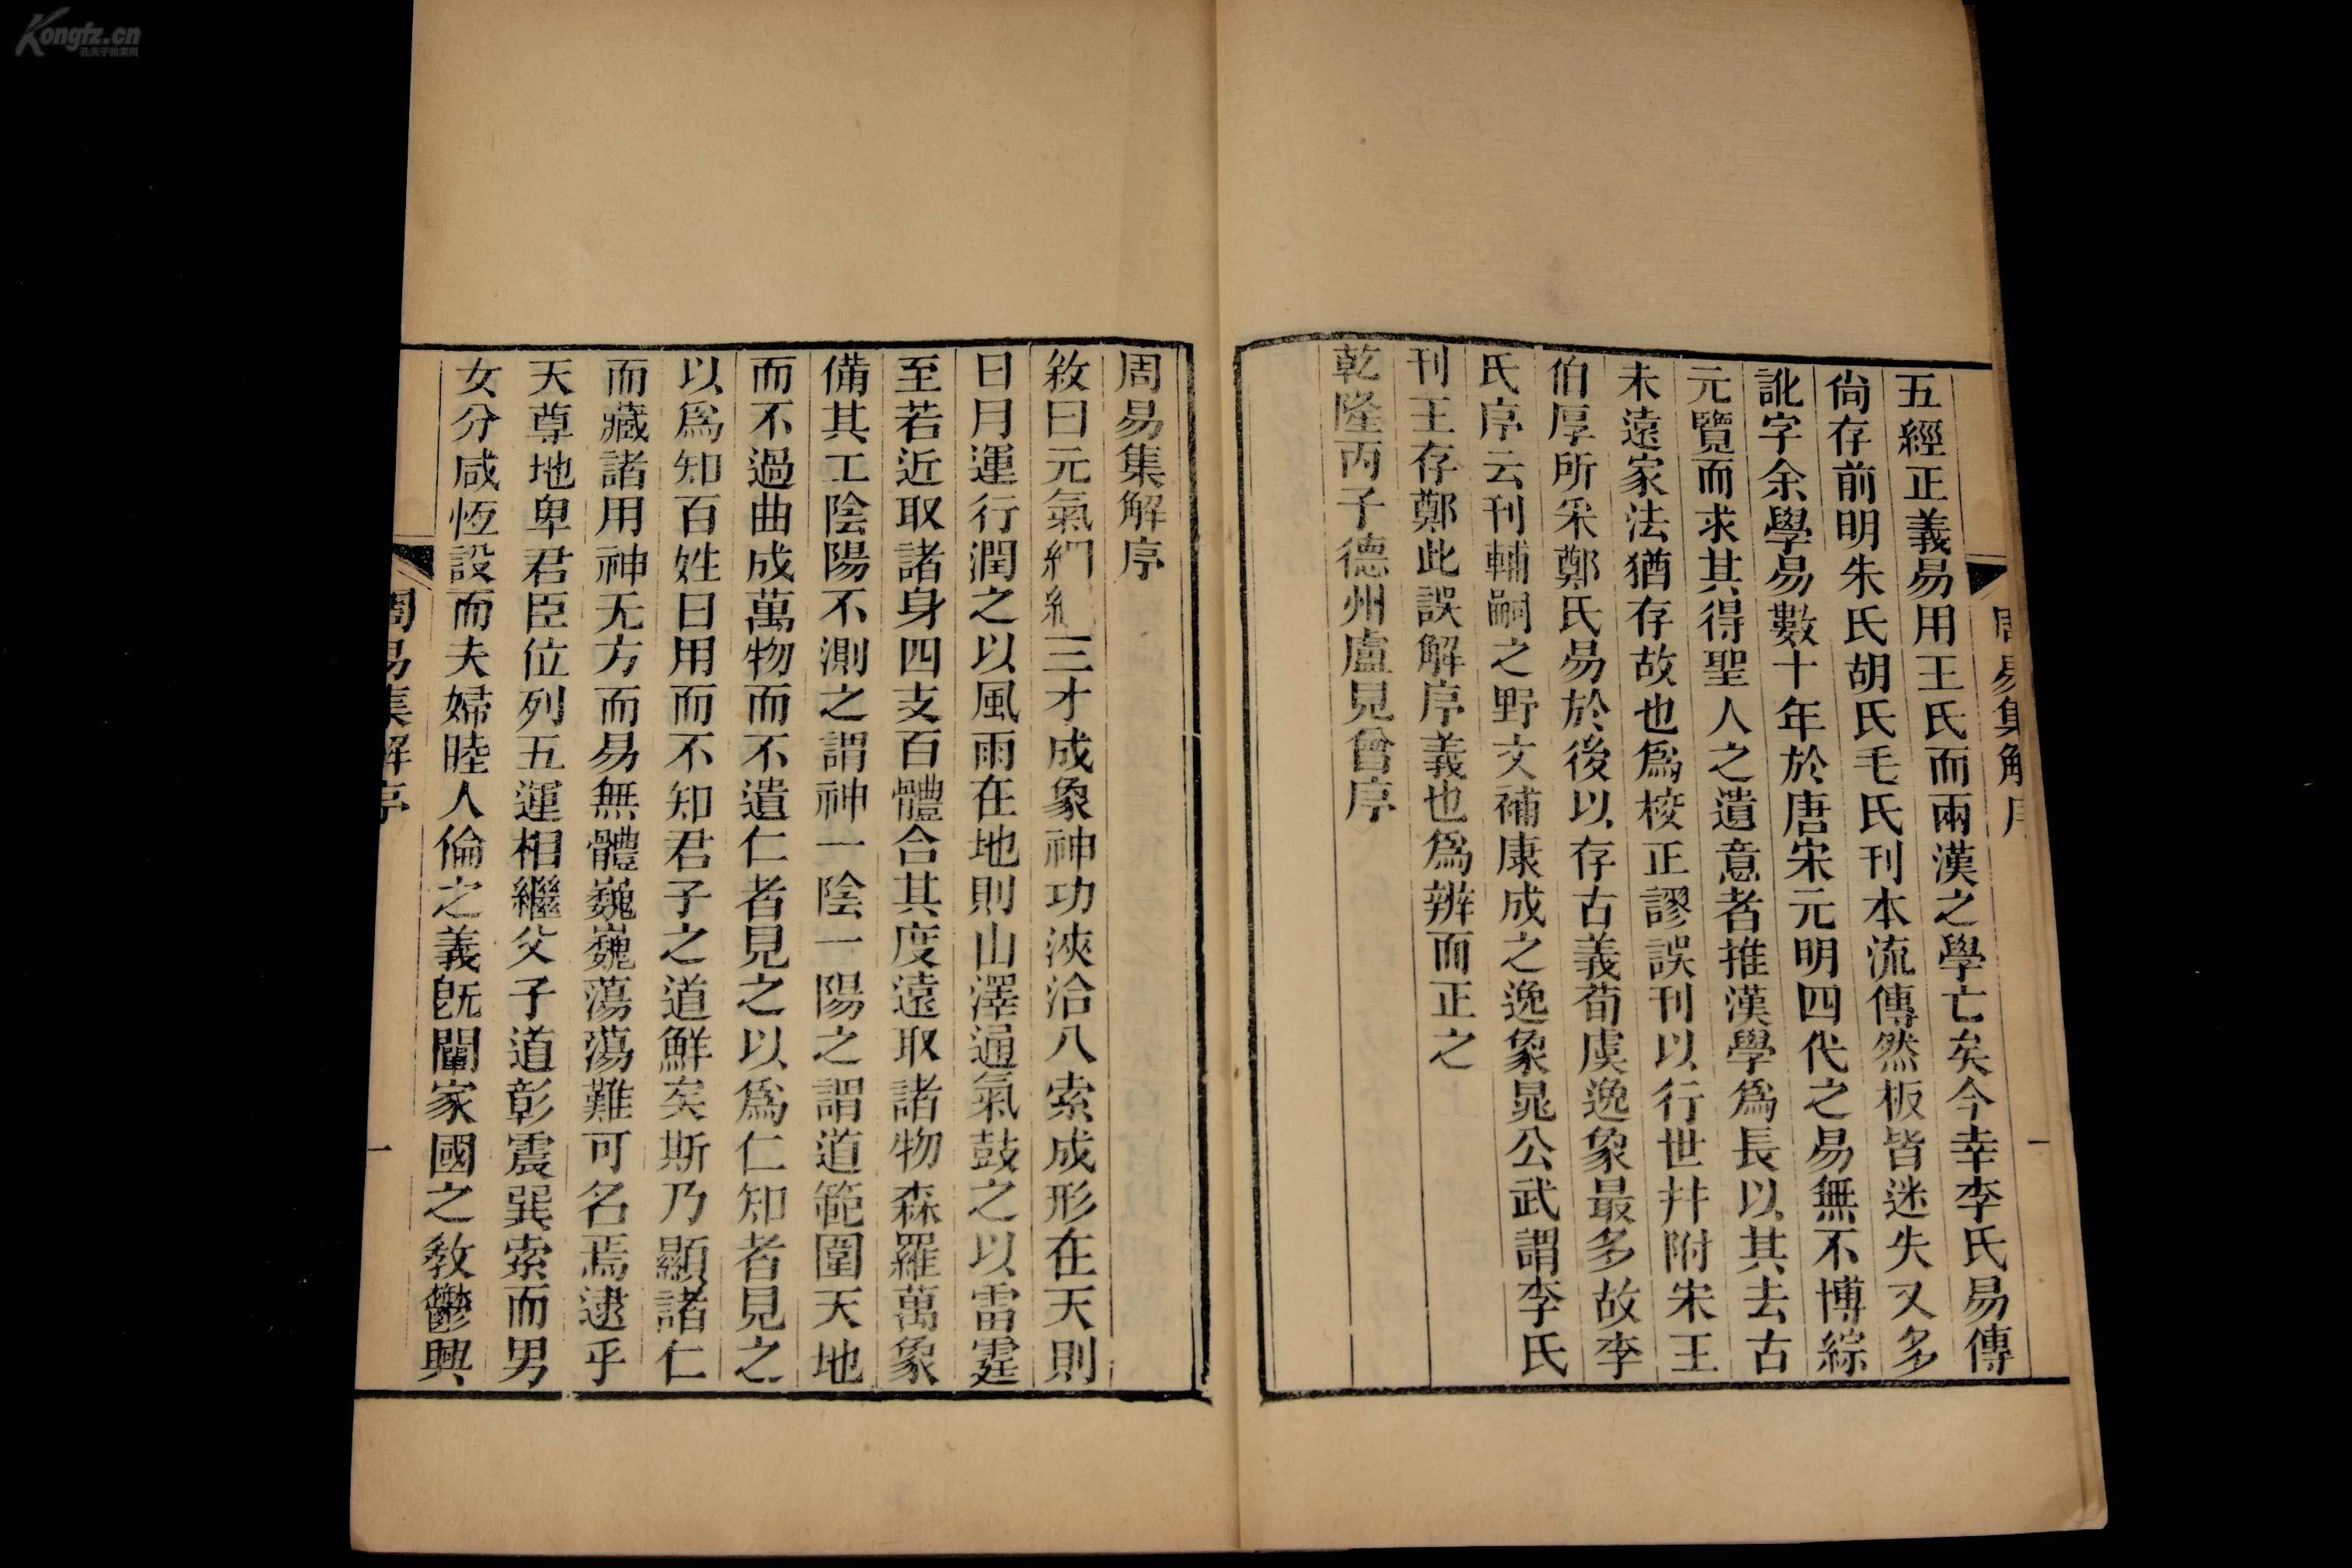 Kongfz.cn
周易集解序
一
五經正義易用王氏而兩漢之學亡矣今幸李氏易傳
尙存前明朱氏胡氏毛氏刊本流傳然板皆迷失又多
訛字余學易數十年於唐宋元明四代之易無不博綜
元覽而求其得聖人之遺意者推漢學爲長以其去古
未遠家法猶存故也爲校正謬誤刊以行世幷附宋王
伯厚所采鄭氏易於後以存古義荀虞逸象最多故李
氏序云刊輔嗣之野文補康成之逸象晁公武謂李氏
刊王存鄭此誤解序義也爲辨而正之
乾隆丙子德州盧見曾序
周易集解序
敘曰元氣絪三才成象神功浹洽八索成形在天則
日月運行潤之以風雨在地則山澤通氣鼓之以雷霆
至若近取諸身四支百體合其度遠取諸物森羅萬象
備其工陰陽不測之謂神一陰一陽之謂道範圍天地
而不過曲成萬物而不遺仁者見之以爲仁知者見之
以爲知百姓日用而不知君子之道鮮矣斯乃顯諸仁
而藏諸用神无方而易無體巍巍蕩蕩難可名焉逮乎
天尊地卑君臣位列五運相繼父子道彰震巽索而男
女分咸恆設而夫婦睦人倫之義旣闡家國之敎鬱興
周易集解序
一